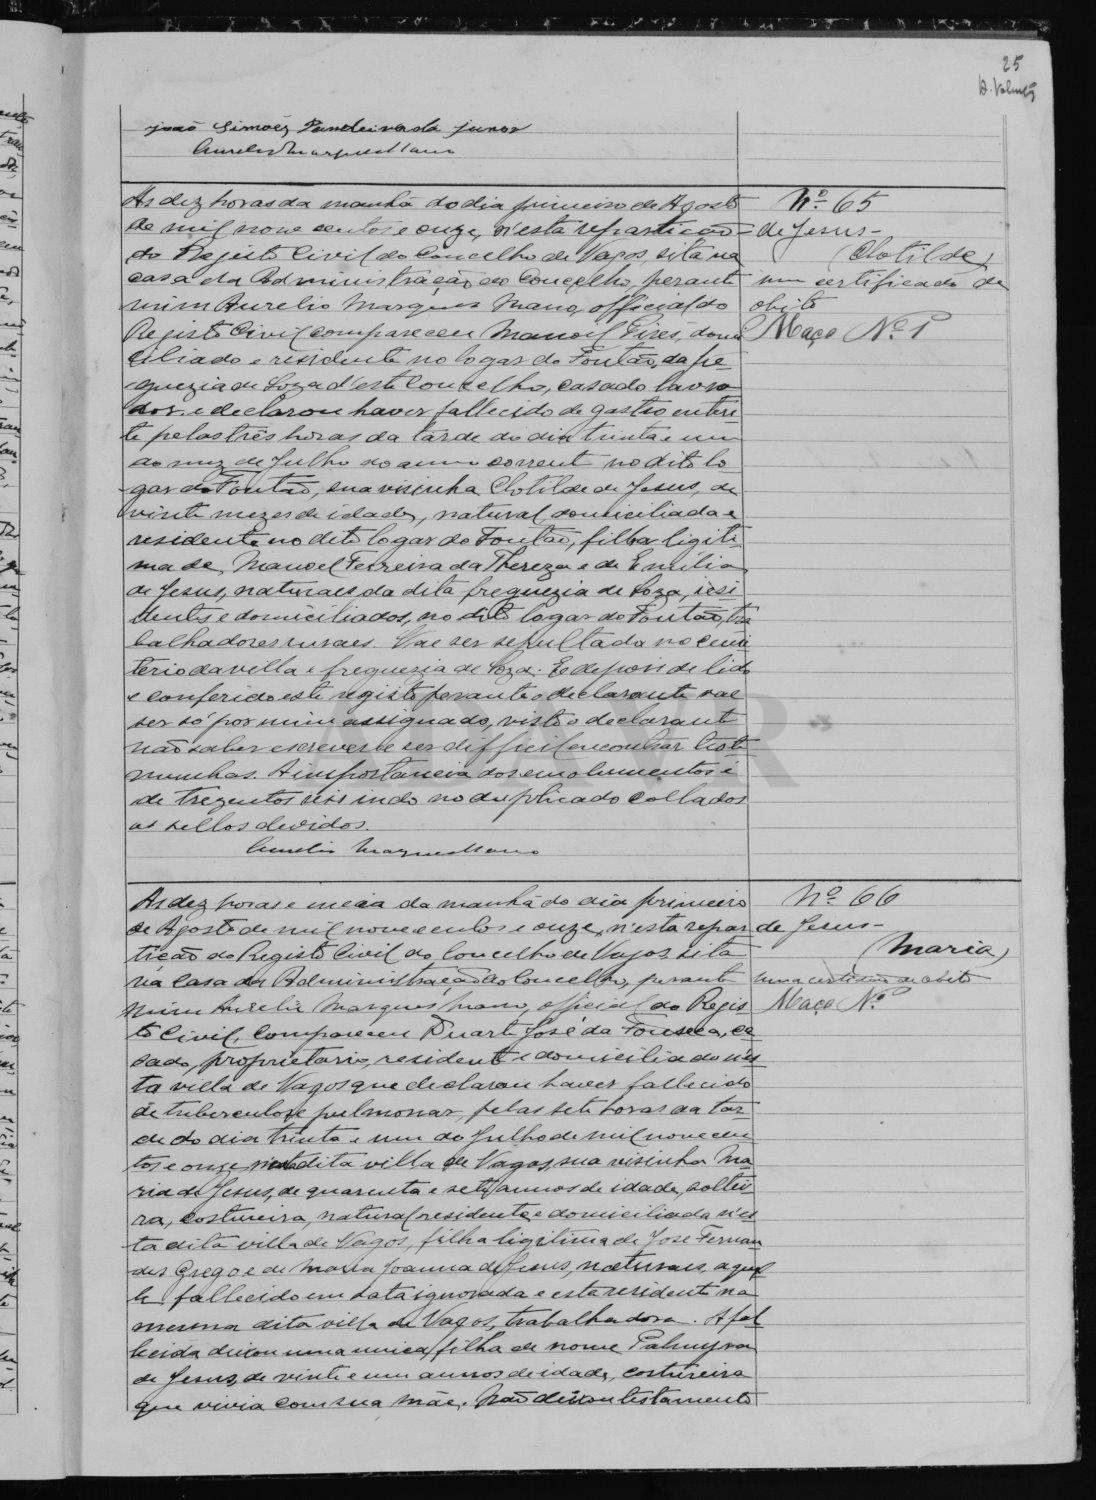 25
João Simões Pandeirada Junor
Aurelio Marques Mano
Nº 65
de Jesus-
(Clotilde)
um certificado de
obito
Maço Nº 1
As dez horas da manhã do dia primeiro de Agosto
de mil nove centos e onze, n'esta repartição
do Registo Civil do Concelho de Vagos, sita na
casa da Administração do Concelho, perante
mim Aurelio Marques Mano, official do
Registo Civil compareceu Manoel Pires, domi
ciliado e residente no logar do Fontão, da fre
guezia de Soza d'este Concelho, casado lavra
dor e declarou haver fallecido de gastro enteri
te pelas três horas da tarde do dia trinta e um
do mez de Julho do anno corrente no dito lo
gar do Fontão, sua visinha Clotilde de Jesus, de
vinte mezes de idade, natural, domiciliada e
residente no dito logar do Fontão, filha ligiti
ma de Manoel Ferreira da Thereza e de Emilia
de Jesus, naturaes da dita freguezia de Soza, resi
dentes e domiciliados, no dito logar do Fontão, tra
balhadores ruraes. Vae ser sepultada no cemi
terio da villa e freguezia de Soza. E depois de lido
e conferido este registo perante o declarante vae
ser só por mim assignado, visto o declarante
não saber escrever e ser difficil encontrar teste
munhas. A importancia dos emolumentos é
de trezentos reis indo no duplicado collados
os sellos devidos.
Aurelio Marques Mano
ADAVR
Nº 66
de Jesus-
(Maria)
uma certidão de obito
Maço Nº
As dez horas e meia da manhã do dia primeiro
de Agosto de mil novecentos e onze, n'esta repar
tição do Registo Civil do Concelho de Vagos, sita
na casa da Administração do Concelho, perante
mim Aurelio Marques Mano, official do Regis
to Civil, compareceu Duarte José da Fonseca, ca
sado, proprietario, residente e domiciliado n'es
ta villa de Vagos que declarou haver fallecido
de tuberculose pulmonar, pelas sete horas da tar
de do dia trinta e um de Julho de mil novecen
tos e onze n'esta dita villa de Vagos, sua visinha Ma
ria de Jesus, de quarenta e sete annos de idade, soltei
ra, costureira, natural, residente e domiciliada n'es
ta dita villa de Vagos, filha ligitima de José Fernan
des Grego e de Maria Joanna de Jesus, naturaes, aquel
le fallecido em data ignorada e esta residente na
mesma dita villa de Vagos, trabalhadora. A fal
lecida deixou uma unica filha de nome Palmyra
de Jesus, de vinte e um annos de idade, costureira
que vivia com sua mãe. Não deixou testamento